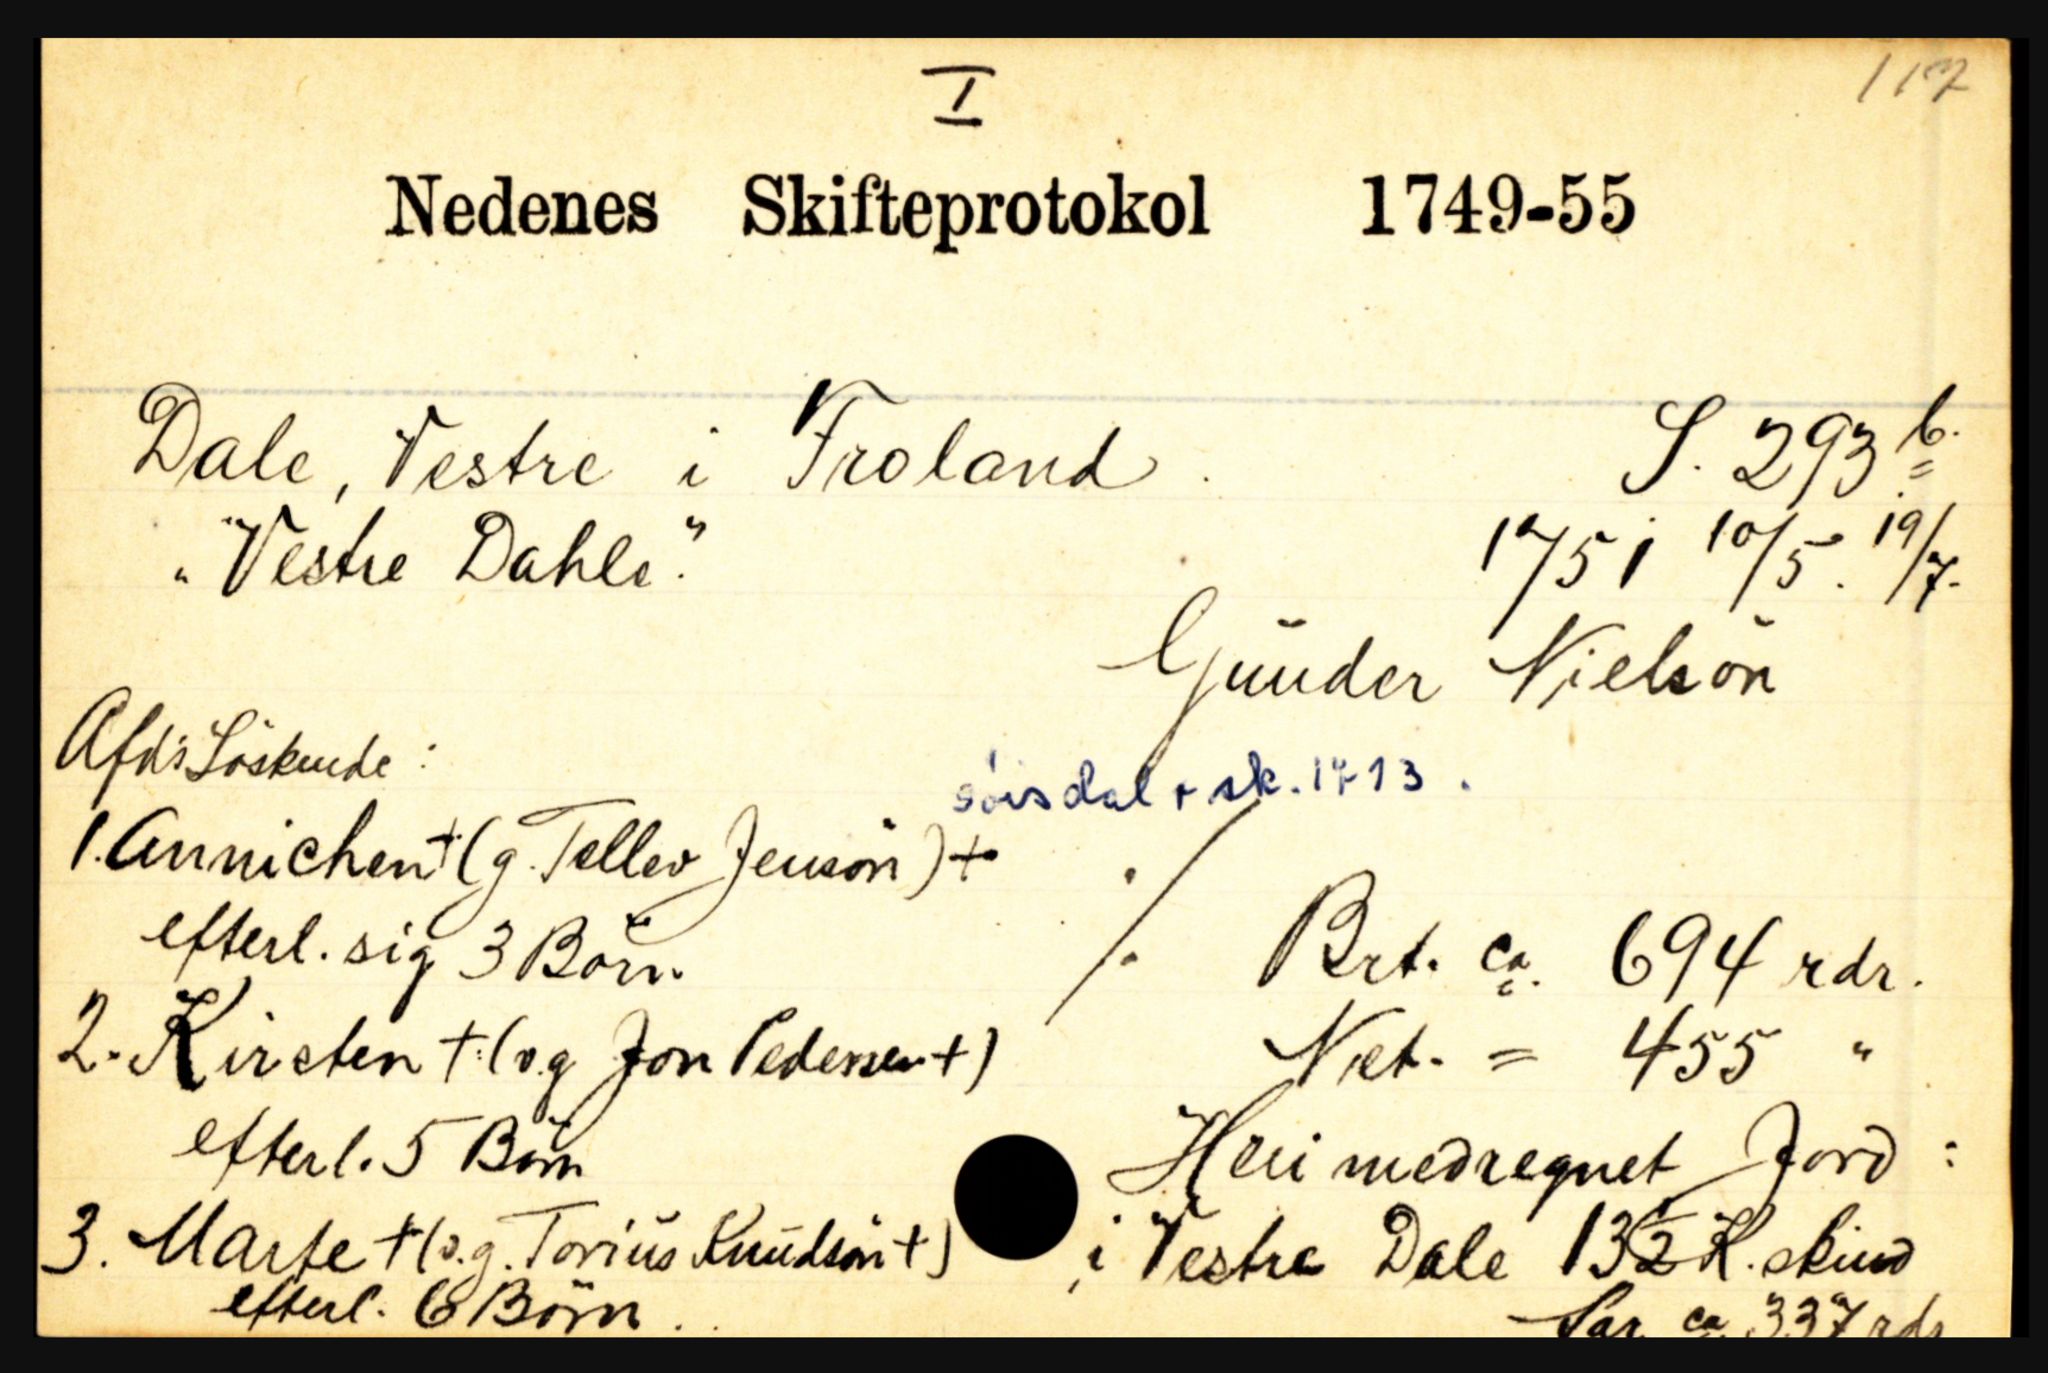 I
117
Nedenes Skifteprotokol 1749-55
Dale, Vestre i Froland. S. 293 b.
"Vestre Dahle". 1751 10/5. 19/7.
Gunder Nielsön
Afd's Söskende:
sk. 1713.
1. Annichen + (g. Tellev Jensön) +
efterl. sig 3 Börn.
2. Kirsten + (v.g Jon Pedersen +)
efterl. 5 Börn
3. Marte + (v.g. Torius Knudsön +)
efterl. 6 Börn.
./.
Brt. ca. 694 rdr.
Net. = 455 "
Heri medregnet Jord:
i Vestre Dale 13½ K. skind
for ca 337 rdr